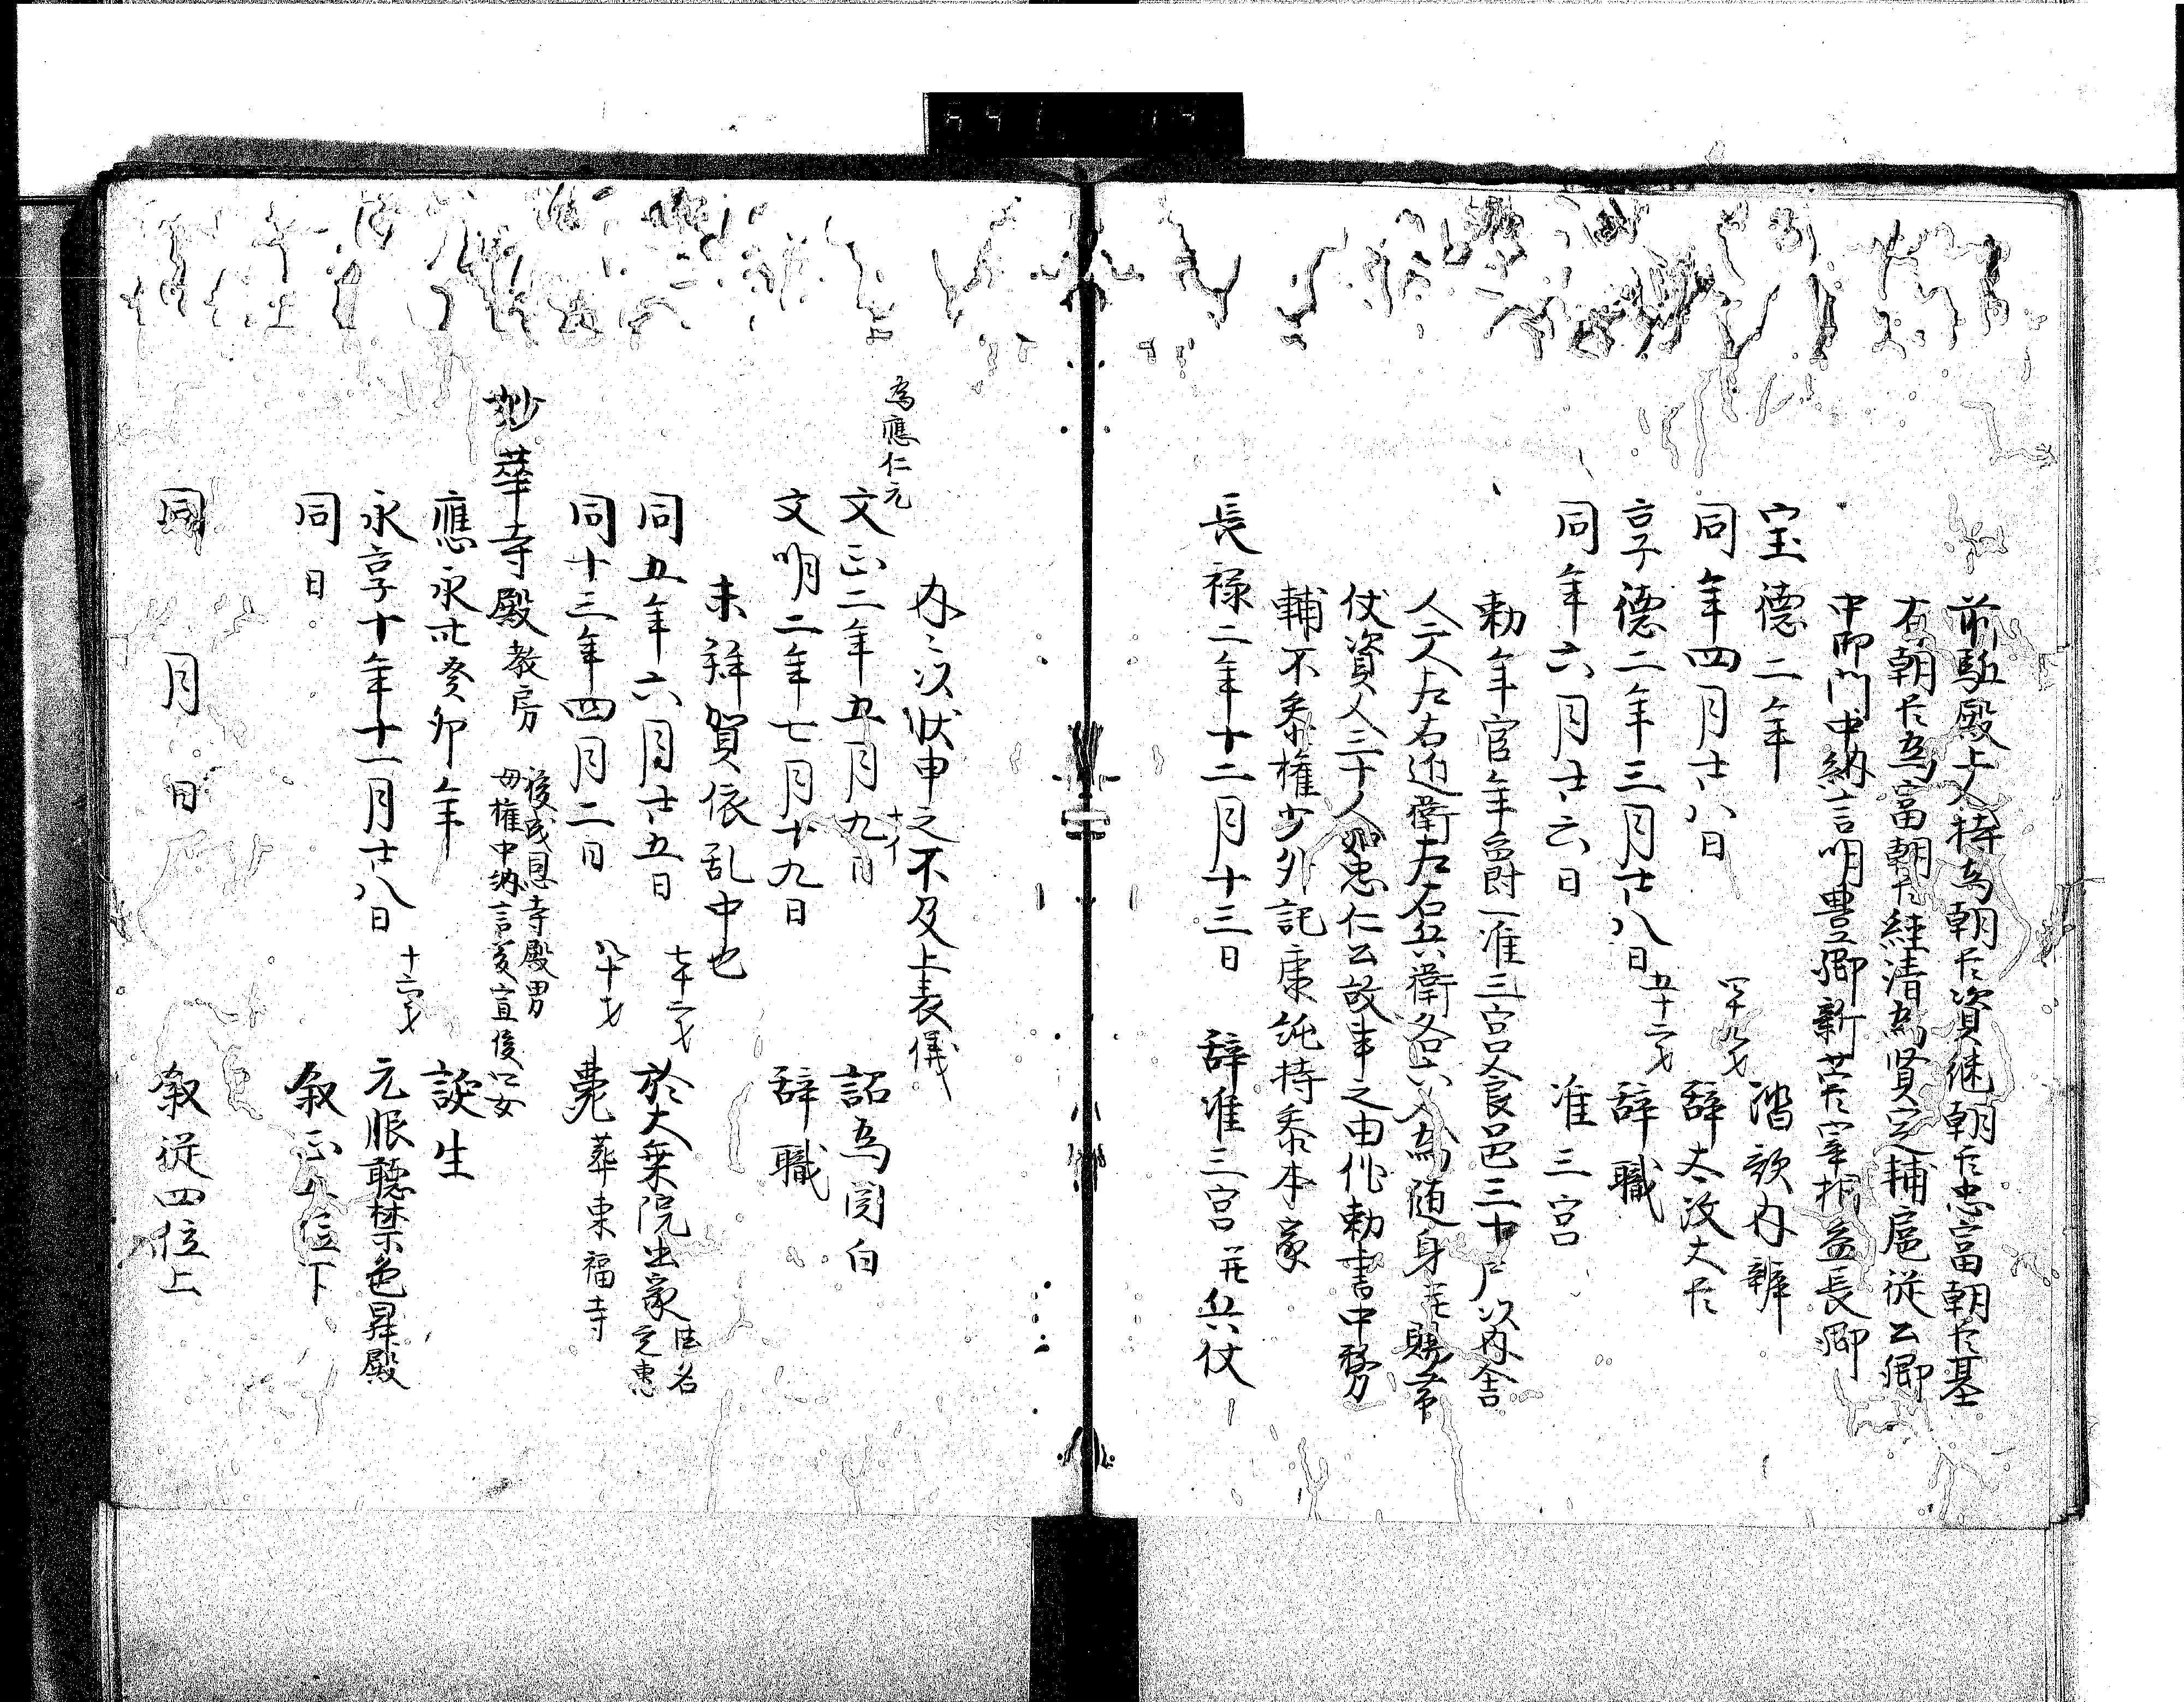 前駈殿上人持為朝臣資継朝臣忠富朝臣基
有朝臣為富朝臣経清為賢定輔扈従公卿
中御門中納言明豊卿新宰相益長卿
宝徳二年 踏歌内辨
同年四月廿八日 四十九才 辞太政大臣
享徳二年三月廿八日 五十二才 辞職
同年六月廿六日 准三宮
勅年官年爵一准三宮又食邑三千戸以内舎
人二人左右近衛左右兵衛各六人為随身兵仗賜帯
仗資人三十人如忠仁公故事之由作勅書中務
輔不参権少外記康純持参本家
長禄二年十二月十三日 辞准三宮并兵仗
内々以状申之不及上表儀
為應仁元
文正二年五月九日 十イ 詔為関白
文明二年七月十九日 辞職
未拝賀依乱中也
同五年六月廿五日 七十二才 於大乗院出家 法名
覚恵
同十三年四月二日 八十才 薨 葬東福寺
妙華寺殿 教房 後成恩寺殿男
母権中納言宣俊女
應永卅癸卯年 誕生
永享十年十一月廿八日 十六才 元服聴禁色昇殿
同日 叙正五位下
同月日 叙従四位上